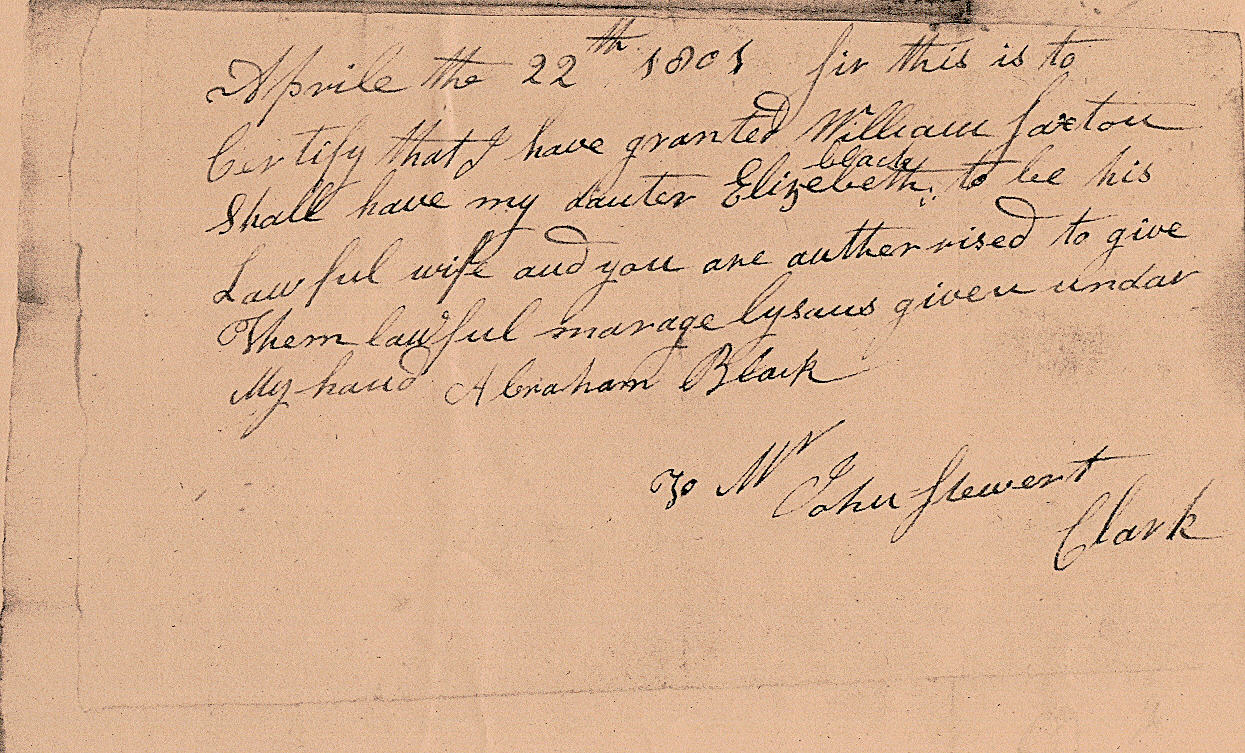 Aprile the 22th 1801 Sir this is to
Certify that I have granted William Saxton
black
Shall have my dauter Elizebeth to be his
Lawful wife and you are autherrised to give
Them lawful marage lysaus given undar
My hand Abraham Black
To Mr John Stewert
Clark